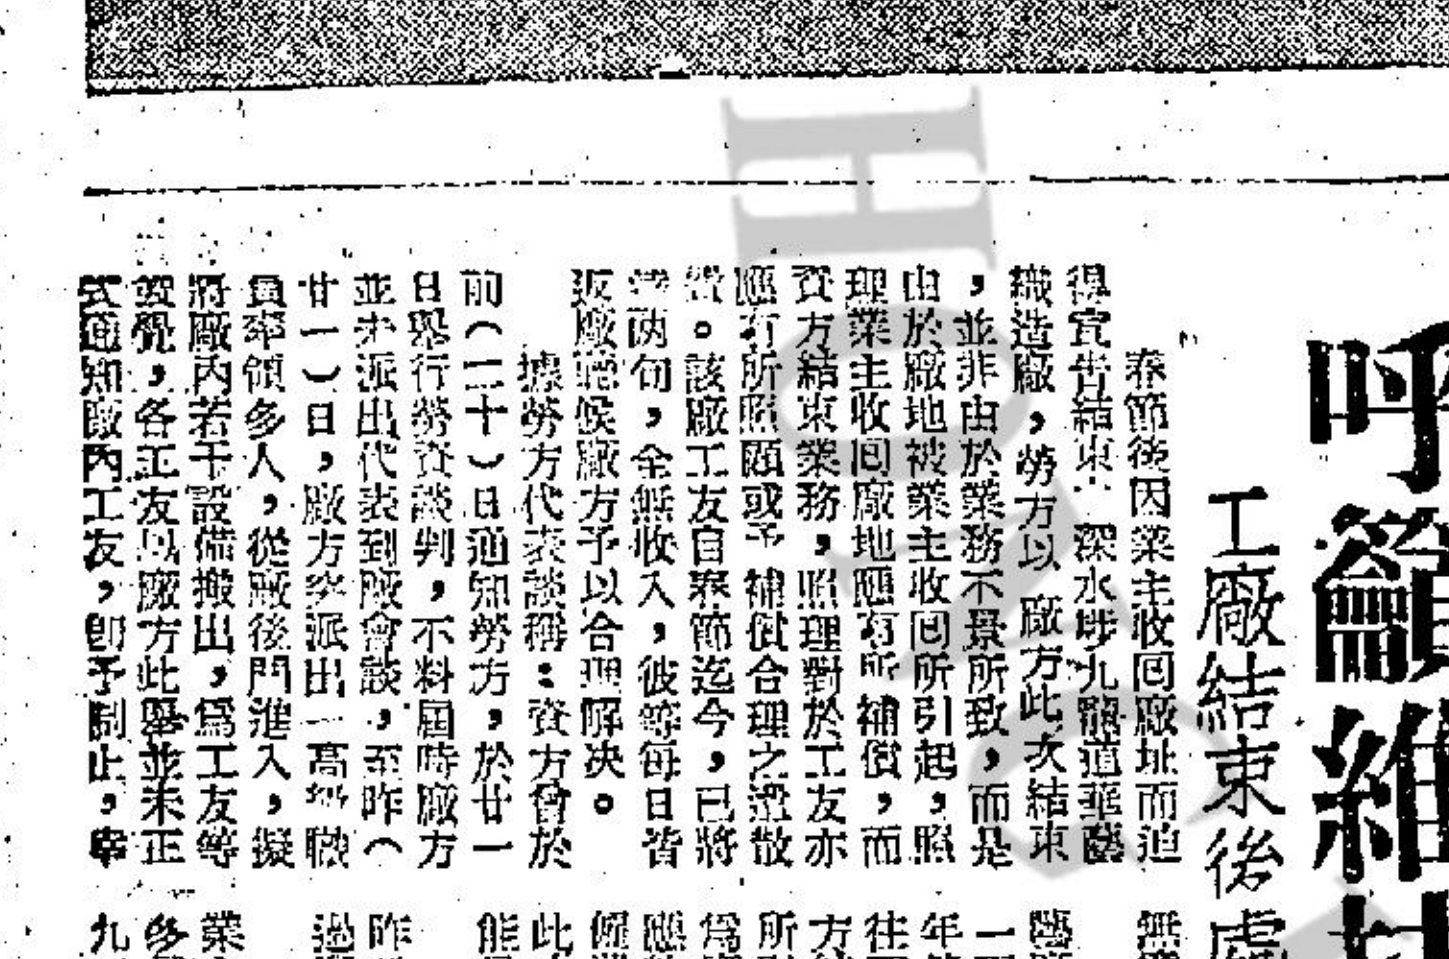 呼籲維
工廠結束後處
春節後因業主收回廠址而迫
得宣告結束，深水埗九龍道華薩
織造廠，勞方以廠方此次結束
，並非由於業務不景所致，而是
由於廠地被業主收回所引起，照
理業主收回廠地應有所補償，而
資方結束業務，照理對於工友亦
應有所照顧或予補償合理之遣散
費。該廠工友自春節迄今，已將
兩旬，全無收入，彼等每日皆
返廠聽候廠方予以合理解決。
據勞方代表談稱：資方曾於
前（二十）日通知勞方，於廿一
日舉行勞資談判，不料屆時廠方
並未派出代表到廠會談，至昨（
廿一）日，廠方突派出一高級職
員率領多人，從廠後門進入，擬
將廠內若干設備搬出，爲工友等
發覺，各工友以廠方此舉並未正
式通知廠內工友，卽予制止，
無
一
年
往
方
所
爲
應
僱
此
能
昨
過
業
多
九